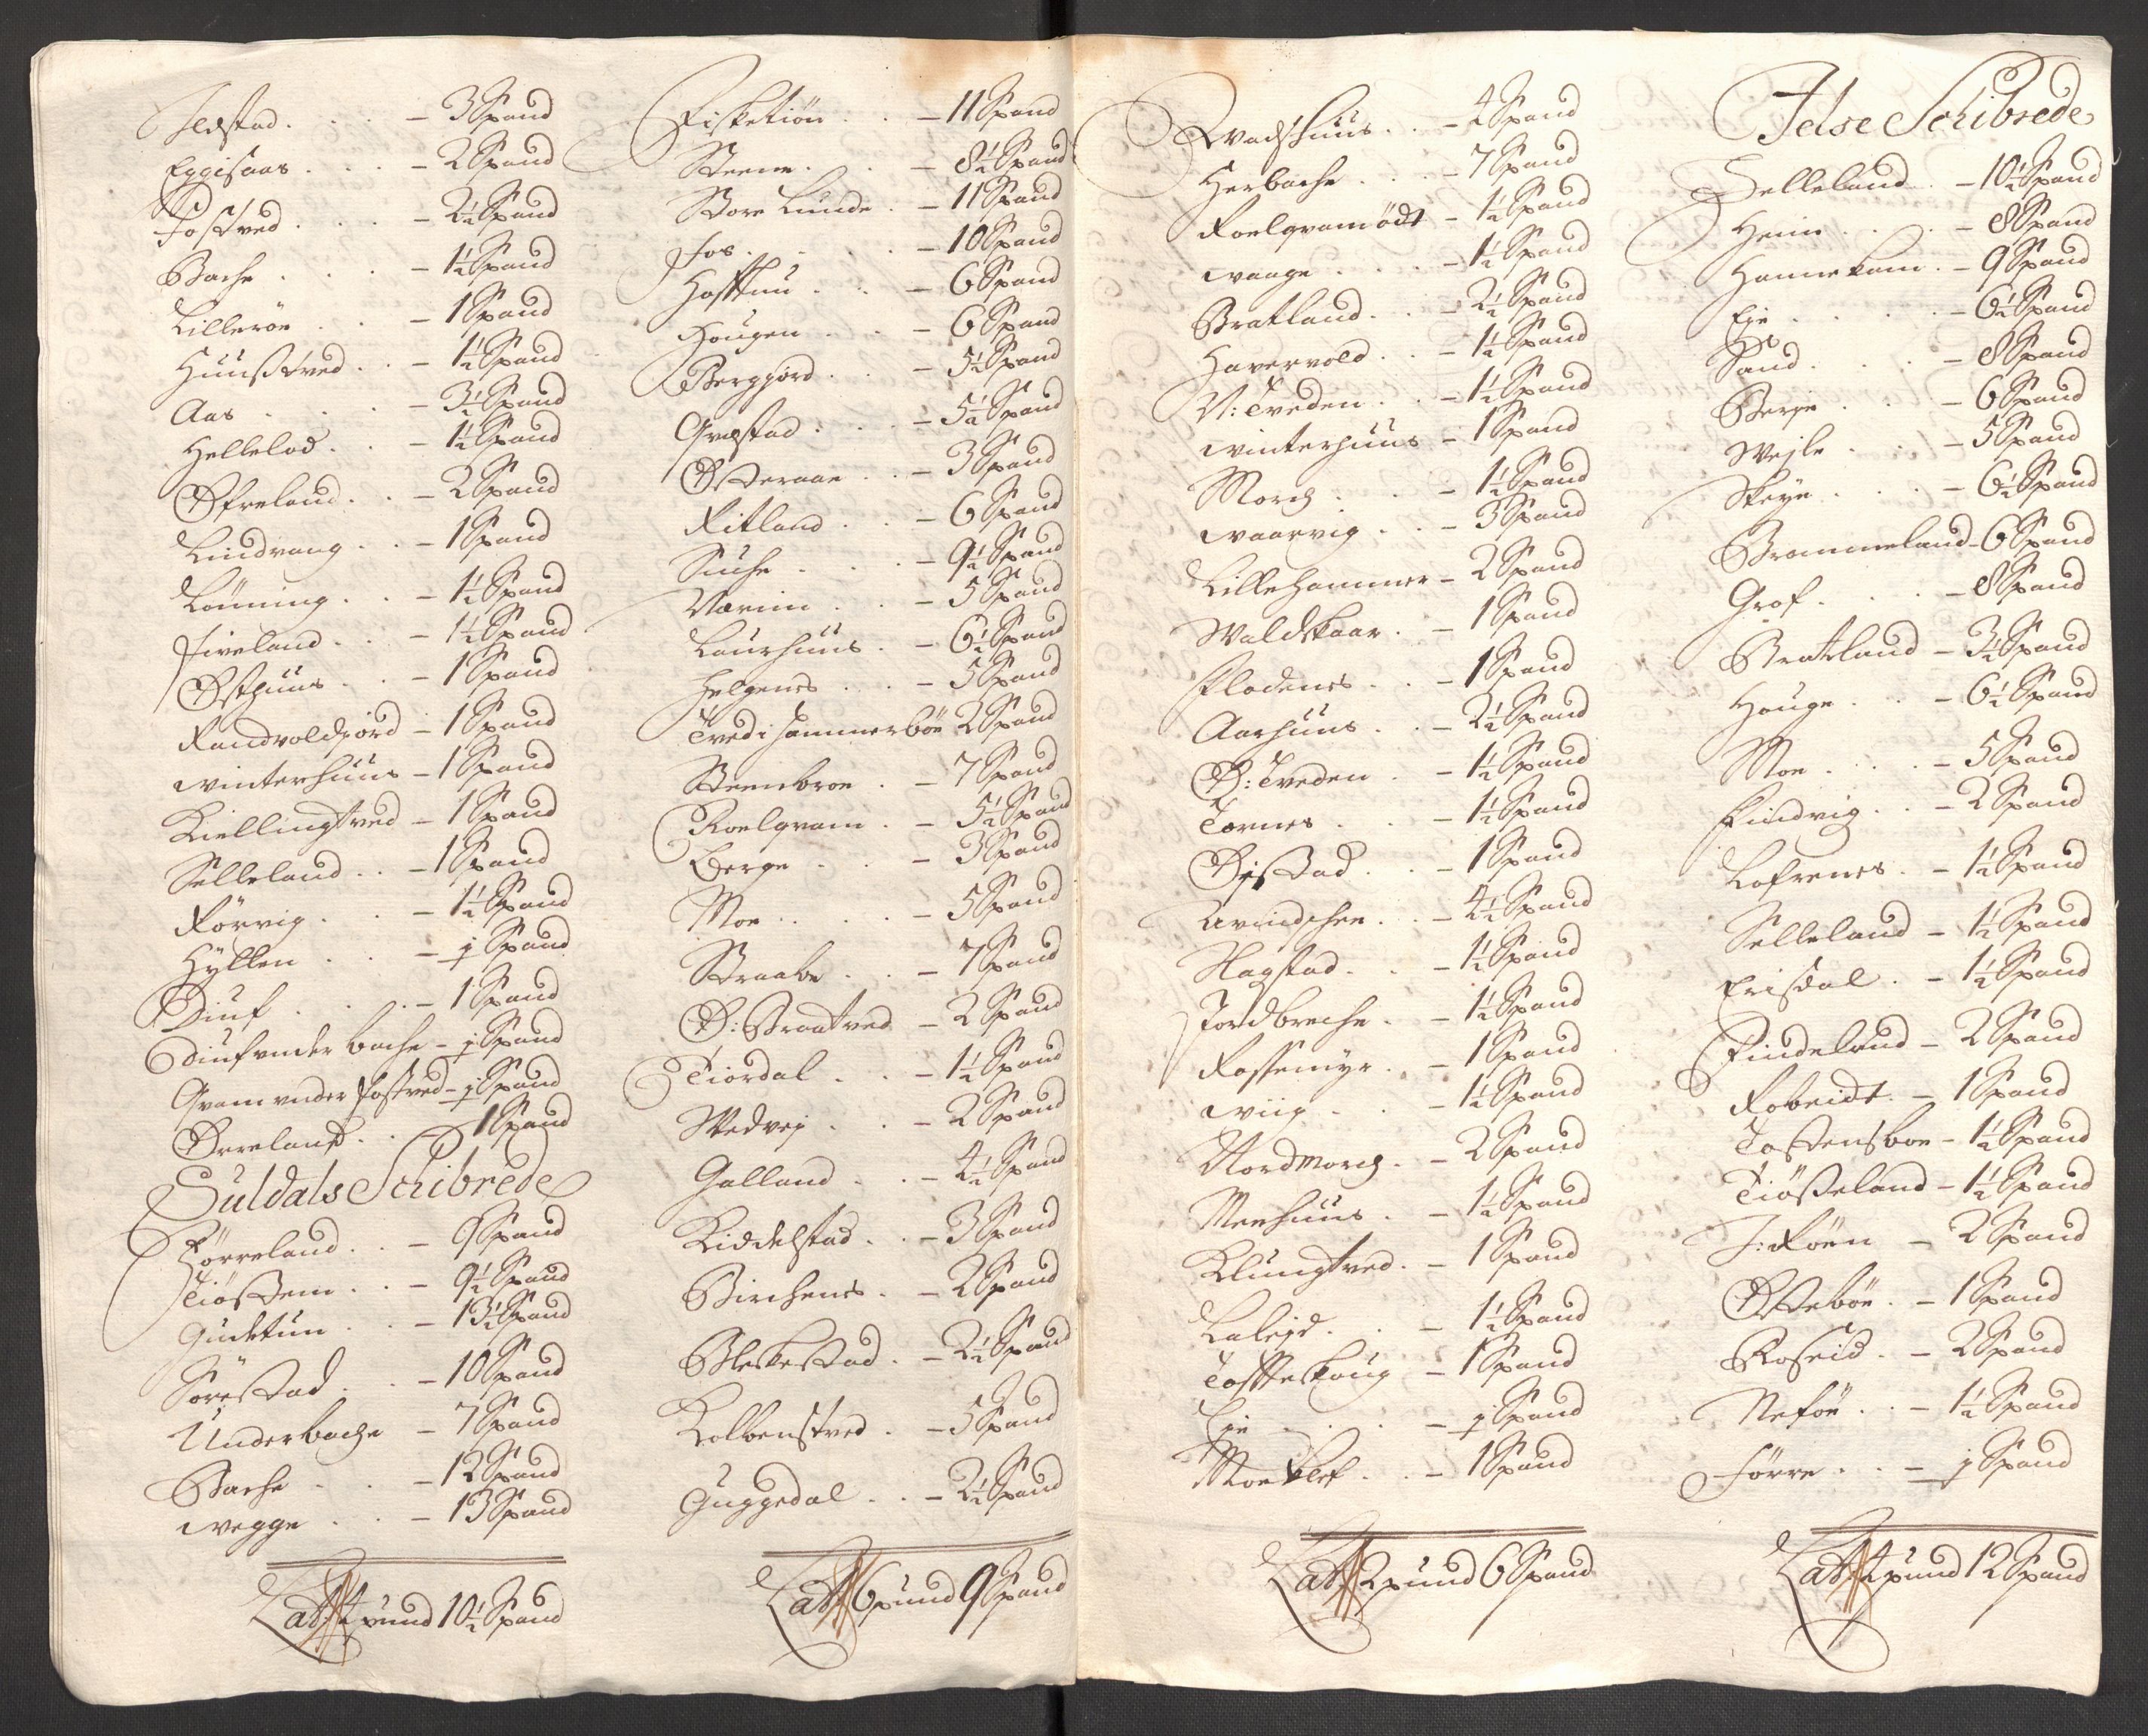 Ilstad . . . – 3 Spand
Eggisaas . . . – 2 Spand
Fostved . . . – 2½ Spand
Bache . . . – 1½ Spand
Lilleröe . . – 1 Spand
Huustved . . – 1½ Spand
Aas . . . – 3½ Spand
Hellelad . . 1½ Spand
Öfreland . . – 2 Spand
Lindvang . . – 1 Spand
Lönning . . – 1½ Spand
Fiveland . . – 1½ Spand
Østhuus . . – 1 Spand
Randvoldfiord – 1 Spand
Winterhuus – 1 Spand
Kiellingtved – 1 Spand
Selleland . . – 1 Spand
Rörvig . . – 1½ Spand
Hyllen . . – j Spand
Diuf . . . – 1 Spand
Diuf under bache – j Spand
Qvam under Fostved – j Spand
Ørreland . . – 1 Spand
Suldals Schibrede
Hörreland . . – 9 Spand
Tiöstem . . – 9½ Spand
Gudetun . . – 13½ Spand
Sörestad . . – 10 Spand
Underbache – 7 Spand
Bache . . – 12 Spand
Wegge . . – 13 Spand
Lat 4 pund 10½ Spand
Fisketiön . . – 11 Spand
Steene . . – 8½ Spand
Store Lunde . – 11 Spand
Fos . . . – 10 Spand
Hofftun . . – 6 Spand
Hougen . . – 6 Spand
Berggiord . . – 5½ Spand
Qvæstad . . – 5½ Spand
Østeraae . . – 3 Spand
Ritland . . – 6 Spand
Suche . . . – 9½ Spand
Nærim . . – 5 Spand
Laurhuus . – 6½ Spand
Helgenes . . – 5 Spand
Tved i hammerböe 2 Spand
Steenbroe . – 7 Spand
Roelqvam . – 5½ Spand
Berge . . – 3 Spand
Moe . . . – 5 Spand
Straabe . . – 7 Spand
Ø: Braatved – 2 Spand
Tiordal . . – 1½ Spand
Wedvej . . – 2 Spand
Galland . . – 4½ Spand
Kiddelstad . . – 3 Spand
Birchenes . – 2 Spand
Bleskestad . – 2½ Spand
Kolbenstved . – 5 Spand
Guggedal . . – 2½ Spand
Lat 6 pund 9 Spand
Wadshuus . . – 4 Spand
Herbache . . – 7 Spand
Roelqvamödt – 1½ Spand
Waage . . . – 1½ Spand
Bratland . . – 2½ Spand
Havervold . . – 1½ Spand
N: Tveden . . – 1½ Spand
Winterhuus – 1 Spand
Morch . . – 1½ Spand
Waarvig . . – 3 Spand
Lillehammer – 2 Spand
Waldskaar . – 1 Spand
Flodenes . . – 1 Spand
Aarhuus . . – 2½ Spand
Ø: Tveden . – 1½ Spand
Tornes . . – 1½ Spand
Öystad . . – 1 Spand
Qvindshee . . – 4½ Spand
Nagstad . . – 1½ Spand
Jordbreche . – 1½ Spand
Rossemyr . – 1 Spand
Wiig . . – 1½ Spand
Nordmorch . – 2 Spand
Meehuus . – 1½ Spand
Klungtved . – 1 Spand
Laleid . . – 1½ Spand
Tofteskoug – 1 Spand
Eie . . . – j Spand
Moeklef . . – 1 Spand
Lat 2 pund 6 Spand
Jelse Schibrede
Helleland . – 10½ Spand
Heim . . . – 8 Spand
Hannekam . – 9 Spand
Eie . . . – 6½ Spand
Sand . . . – 8 Spand
Berge . . – 6 Spand
Wejle . . – 5 Spand
Skeye . . – 6½ Spand
Brommeland – 6 Spand
Grof . . . – 8 Spand
Bratland – 3½ Spand
Houge . . – 6½ Spand
Moe . . . – 5 Spand
Findvig . . – 2 Spand
Lofrenes . – 1½ Spand
Selleland – 1½ Spand
Erisdal . – 1½ Spand
Findeland – 2 Spand
Robeidt – 1 Spand
Tostensboe – 1½ Spand
Tiösteland – 1½ Spand
I: Röen – 2 Spand
Østeböe . – 1 Spand
Roseid . – 2 Spand
Neföe . . – 1½ Spand
Förre . . – j Spand
Lat 4 pund 12 Spand